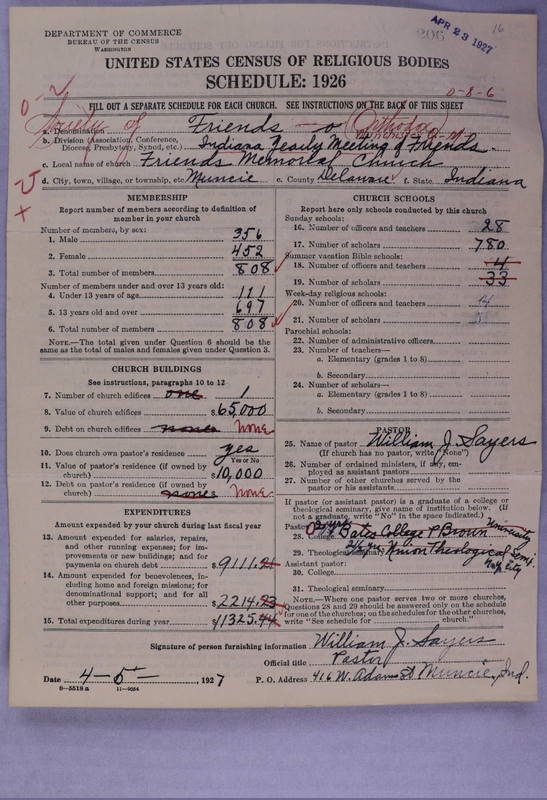 DEPARTMENT OF COMMERCE
BUREAU OF THE CENSUS
WASHINGTON
APR 23 1927
206
16
UNITED STATES CENSUS OF RELIGIOUS BODIES
SCHEDULE: 1926
0-8-6
FILL OUT A SEPARATE SCHEDULE FOR EACH CHURCH. SEE INSTRUCTIONS ON THE BACK OF THIS SHEET
Society of
a. Denomination Friends - o (Orthodox)
b. Division (Association, Conference, Diocese, Presbytery, Synod, etc.) Indiana Yearly Meeting of Friends
c. Local name of church Friends Memorial Church
d. City, town, village, or township, etc. Muncie e. County Delaware f. State Indiana
MEMBERSHIP
Report number of members according to definition of member in your church
Number of members, by sex:
1. Male 356
2. Female 452
3. Total number of members 808
Number of members under and over 13 years old:
4. Under 13 years of age 111
5. 13 years old and over 697
6. Total number of members 808
NOTE.—The total given under Question 6 should be the same as the total of males and females given under Question 3.
CHURCH BUILDINGS
See instructions, paragraphs 10 to 12
7. Number of church edifices one 1
8. Value of church edifices $65,000
9. Debt on church edifices none None
10. Does church own pastor's residence yes
Yes or No
11. Value of pastor's residence (if owned by church) $10,000
12. Debt on pastor's residence (if owned by church) none None
EXPENDITURES
Amount expended by your church during last fiscal year
13. Amount expended for salaries, repairs, and other running expenses; for improvements or new buildings; and for payments on church debt $9111.21
14. Amount expended for benevolences, including home and foreign missions; for denominational support; and for all other purposes $2214.23
15. Total expenditures during year 11325.44
CHURCH SCHOOLS
Report here only schools conducted by this church
Sunday schools:
16. Number of officers and teachers 28
17. Number of scholars 780
Summer vacation Bible schools:
18. Number of officers and teachers 4
19. Number of scholars 33
Week-day religious schools:
20. Number of officers and teachers
21. Number of scholars
Parochial schools:
22. Number of administrative officers
23. Number of teachers—
a. Elementary (grades 1 to 8)
b. Secondary
24. Number of scholars—
a. Elementary (grades 1 to 8)
b. Secondary
PASTOR
25. Name of pastor William J. Sayers
(If church has no pastor, write "None")
26. Number of ordained ministers, if any, employed as assistant pastors
27. Number of other churches served by the pastor or his assistants
If pastor (or assistant pastor) is a graduate of a college or theological seminary, give name of institution below. (If not a graduate, write "No" in the space indicated.)
Pastor:
28. College Bates College & Brown University
29. Theological seminary 2½ yrs. Union Theological Sem. N.Y. City
Assistant pastor:
30. College
31. Theological seminary
NOTE.—Where one pastor serves two or more churches, Questions 28 and 29 should be answered only on the schedule for one of the churches; on the schedules for the other churches, write "See schedule for church."
Signature of person furnishing information William J. Sayers
Official title Pastor
Date 4-5-, 1927 P. O. Address 416 W. Adams St Muncie, Ind.
8—5518 a 11—9054